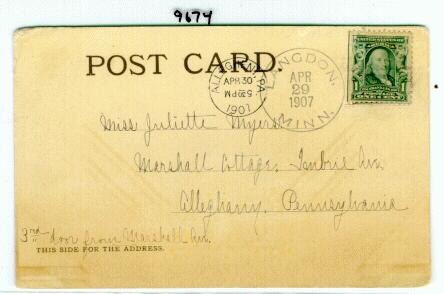 9674
POST CARD.
ALLEGHENY, PA.
APR 30
5:30 PM
1907
LANGDON,
APR
29
1907
MINN.
1 1
Miss Juliette Myers.
Marshall Cottage, Imbrie Av.
Alleghany, Pennsylvania
3rd door from Marshall Av.
THIS SIDE FOR THE ADDRESS.